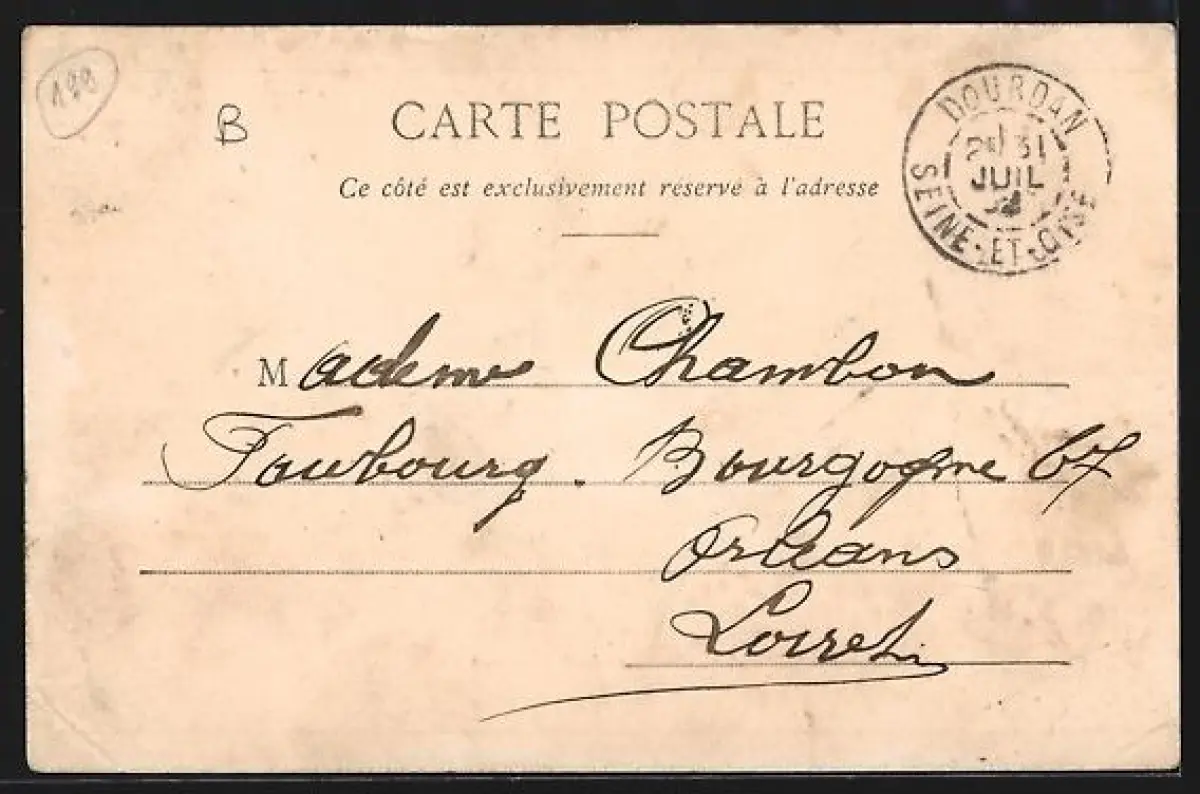 B
CARTE POSTALE
Ce côté est exclusivement réservé à l'adresse
DOURDAN
31
JUIL
SEINE-ET-OISE
Madame Chambon
Faubourg. Bourgogne 67
Orléans
Loiret